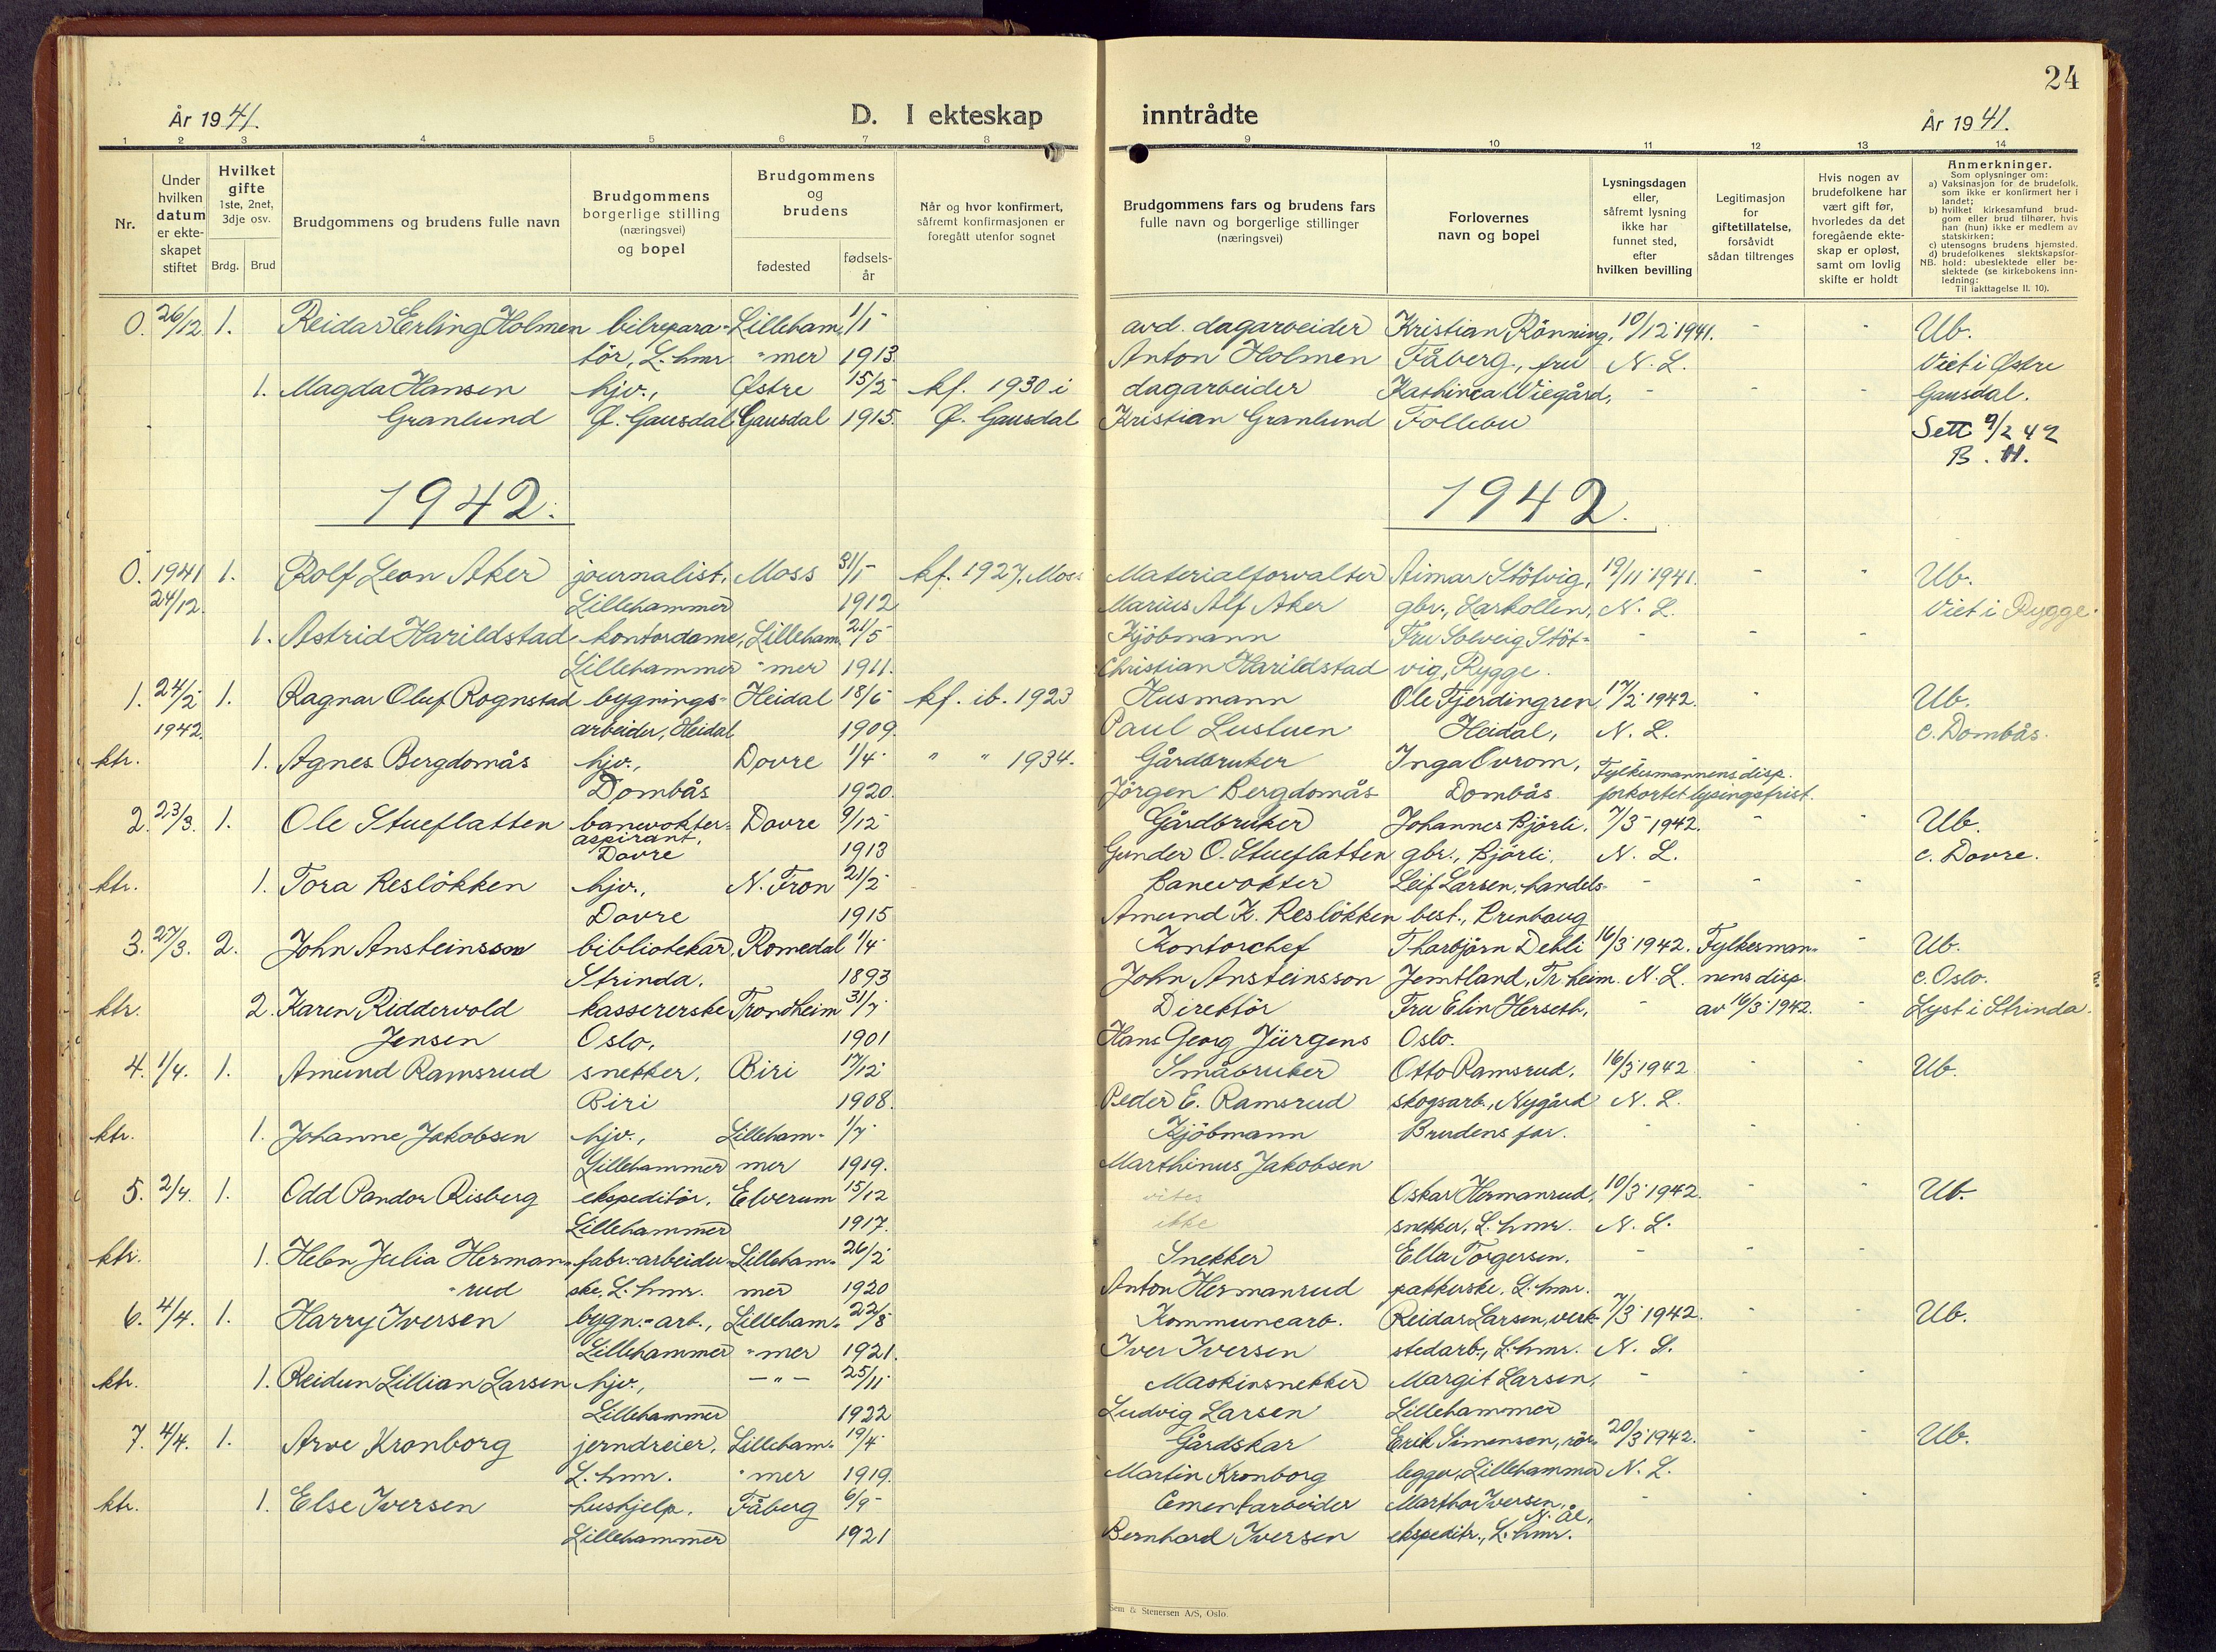 24
År 1941.
D. I ekteskap
inntrådte
År 1941.
1 2 3 4 5 6 7 8
9 10 11 12 13 14
Nr.
Under hvilken datum er ekteskapet stiftet
Hvilket gifte 1ste, 2net, 3dje osv.
Brdg. Brud
Brudgommens og brudens fulle navn
Brudgommens borgerlige stilling (næringsvei) og bopel
Brudgommens og brudens
fødested
fødsels-år
Når og hvor konfirmert, såfremt konfirmasjonen er foregått utenfor sognet
Brudgommens fars og brudens fars fulle navn og borgerlige stillinger (næringsvei)
Forlovernes navn og bopel
Lysningsdagen eller, såfremt lysning ikke har funnet sted, efter hvilken bevilling
Legitimasjon for giftetillatelse, forsåvidt sådan tiltrenges
Hvis nogen av brudefolkene har vært gift før, hvorledes da det foregående ekteskap er opløst, samt om lovlig skifte er holdt
Anmerkninger.
Som oplysninger om:
a) Vaksinasjon for de brudefolk. som ikke er konfirmert her i landet;
b) hvilket kirkesamfund brudgom eller brud tilhører, hvis han (hun) ikke er medlem av statskirken;
c) utensogns brudens hjemsted.
d) brudefolkenes slektskapsforhold: ubeslektede eller beslektede (se kirkebokens innledning:
NB.
Til iakttagelse II. 10).
0. 26/12 1. Reidar Erling Holmen bilrepara- Lilleham 1/1 avd. dagarbeider Kristian Rönning, 10/12 1941. - - Ub.
tör, L.hmr. -mer 1913 Anton Holmen Fåberg, fru N. L. Viet i Østre
1. Magda Hansen hjv., Østre 15/2 kf. 1930 i dagarbeider Kathinca Wiegård, - - - Gausdal.
Granlund Ø. Gausdal Gausdal 1915. Ø. Gausdal Kristian Granlund Follebu Sett 9/2 42
B. H.
1942. 1942.
0. 1941 1. Rolf Leon Aker journalist, Moss 31/1 kf. 1927, Moss Materialforvalter Aimar Stötvig, 19/11 1941. - - Ub.
24/12. Lillehammer 1912 Marius Alf Aker gbr., Larkollen, N. L. Viet i Rygge.
1. Astrid Harildstad kontordame, Lilleham 21/5 Kjöbmann Fru Solveig Stöt- - - -
Lillehammer -mer 1911. Christian Harildstad vig, Rygge.
1. 24/2 1. Ragnar Oluf Rognstad bygnings- Heidal 18/6 kf. ib. 1923 Husmann Ole Fjerdingren, 17/2 1942. - Ub.
1942. arbeider, Heidal 1909. Paul Lusluen Heidal, N. L. c. Dombås.
ktr. 1. Agnes Bergdomås hjv., Dovre 1/4 " " 1934. Gårdbruker Inga Ovrom, Fylkesmannens disp.
Dombås 1920. Jörgen Bergdomås Dombås. forkortet lysingsfrist.
2. 23/3. 1. Ole Stueflatten banevokter- Dovre 9/12 Gårdbruker Johannes Björli, 7/3 1942. - Ub.
aspirant, Dovre 1913 Gunder O. Stueflatten gbr., Björli, N. L. c. Dovre.
ktr. 1. Tora Reslökken hjv., N. Fron 21/2 Banevokter Leif Larsen, handels- - - -
Dovre 1915 Amund K. Reslökken best., Brenhaug
3. 27/3. 2. John Ansteinsson bibliotekar, Romedal 1/4 Kontorchef Tharbjörn Dehli 16/3 1942. Fylkesman- - Ub.
Strinda. 1893 John Ansteinsson Jemtland, Tr-heim. N. L. nens disp. c. Oslo.
ktr. 2. Karen Riddervold kassererske Trondheim 31/7 Direktör Fru Elin Herseth, - av 16/3 1942. - Lyst i Strinda.
Jensen Oslo, 1901 Hans Georg Jürgens Oslo.
4. 1/4. 1. Amund Ramsrud snekker, Biri 17/12 Småbruker Otto Ramsrud, 16/3 1942 - - Ub.
Biri 1908. Peder E. Ramsrud skogsarb., Nygård N. L.
ktr. 1. Johanne Jakobsen hjv., Lilleham- 1/7 Kjöbmann Brudens far. - - -
Lillehammer mer 1919. Marthinus Jakobsen
5. 2/4. 1. Odd Pandor Risberg ekspeditör, Elverum 15/12 vites Oskar Hermanrud, 10/3 1942. - - Ub.
Lillehammer 1917. ikke snekker, L.hmr. N. L.
ktr. 1. Helen Julia Herman- fabr.-arbeider- Lilleham- 26/2 Snekker Ella Torgersen, - - -
-rud ske, L.hmr. mer 1920 Anton Hermanrud pakkerske, L.hmr.
6. 4/4. 1. Harry Iversen bygn.-arb., Lilleham- 22/8 Kommunearb. Reidar Larsen, verk- 7/3 1942. - - Ub.
Lillehammer -mer 1921. Iver Iversen stedarb., L.hmr. N. L.
ktr. 1. Reidun Lillian Larsen hjv., —"— 25/11 Maskinsnekker Margit Larsen, - - -
Lillehammer 1922 Ludvig Larsen Lillehammer
7. 4/4. 1. Arve Kronborg jerndreier, Lilleham- 19/4 Gårdskar Erik Simensen, rör- 20/3 1942. - - Ub.
L.hmr. -mer 1919. Martin Kronborg legger, Lillehammer N. L.
ktr. 1. Else Iversen hushjelp, Fåberg 6/9 Cementarbeider Martha Iversen, - - -
N. Ål,
Lillehammer 1921 Bernhard Iversen ekspeditr., L.hmr.
Sem & Stenersen A/S, Oslo.